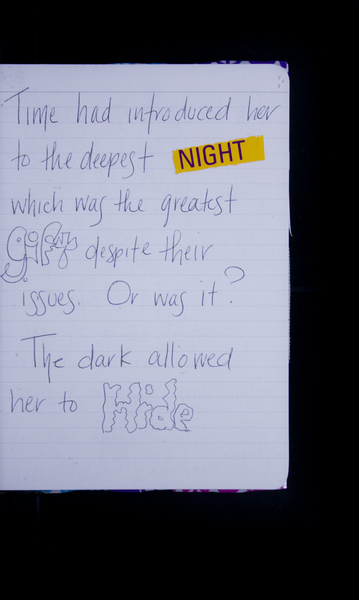 Time had introduced her
to the deepest NIGHT
which was the greatest
Gift despite their
issues. Or was it?
The dark allowed
her to Hide